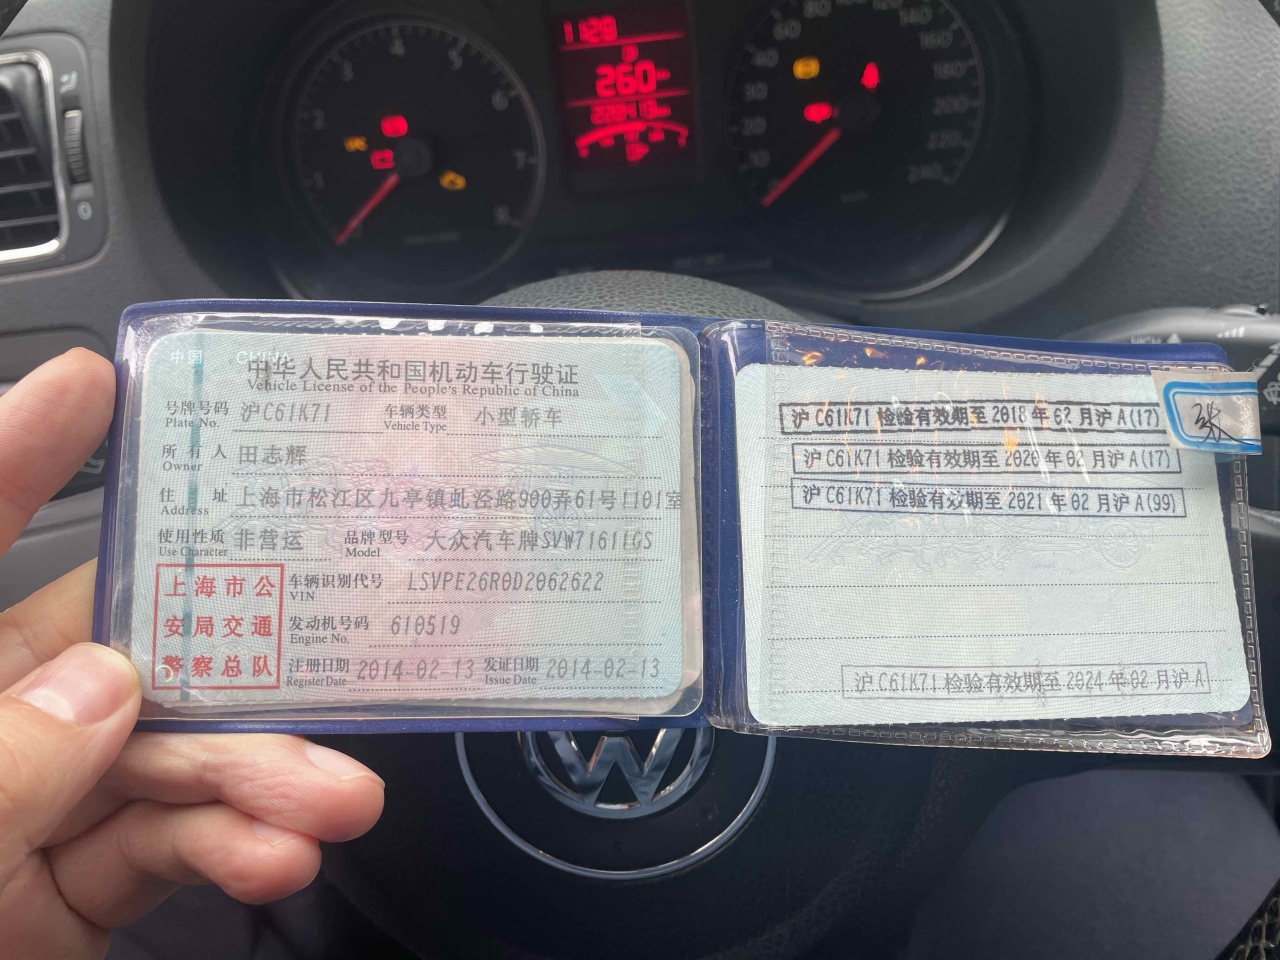 1128
260
4
3
5
2
6
1
7
8
60
80
100
120
140
160
180
200
220
240
40
30
20
10
中国 CHINA
中华人民共和国机动车行驶证
Vehicle License of the People's Republic of China
号牌号码 沪C61K71 车辆类型 小型轿车
Plate No. Vehicle Type
所有人 田志辉
Owner
住址 上海市松江区九亭镇虬泾路900弄61号1101室
Address
使用性质 非营运 品牌型号 大众汽车牌SVW71611GS
Use Character Model
上海市公
安局交通
警察总队
车辆识别代号 LSVPE26R0D2062622
VIN
发动机号码 610519
Engine No.
注册日期 2014-02-13 发证日期 2014-02-13
Register Date Issue Date
沪C61K71 检验有效期至 2018年 02月沪A(17)
沪C61K71 检验有效期至 2020年 02月沪A(17)
沪C61K71 检验有效期至 2021年 02月沪A(99)
沪C61K71 检验有效期至 2024年 02月沪A
张